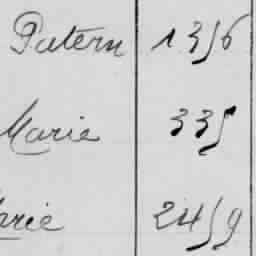 Patern 1356
Marie 335
arie 2459